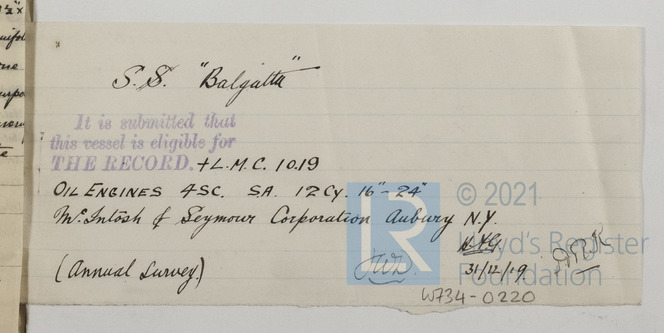 S.S. "Balgatta"
It is submitted that
this vessel is eligible for
THE RECORD. + L.M.C. 10.19
OIL ENGINES 4SC. SA. 12 Cy. 16" - 24"
McIntosh & Seymour Corporation Aubury N.Y.
(Annual Survey)
31/12/19
W734-0220
© 2021
Lloyd's Register
Foundation